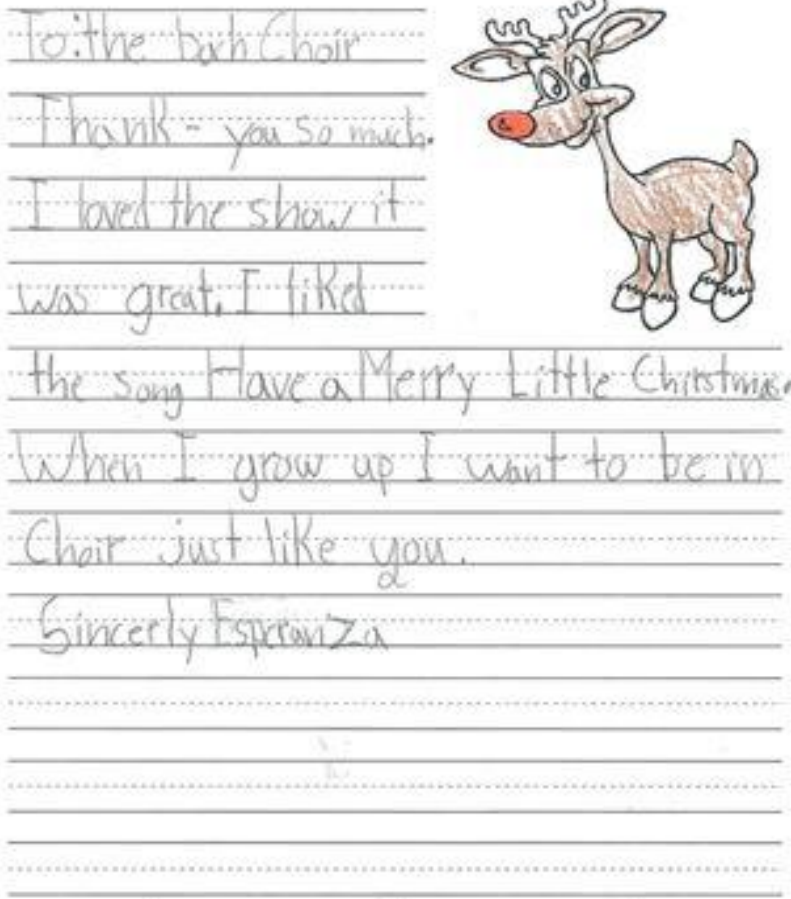 To: the bach Choir
Thank-you so much.
I loved the show it
was great. I liked
the song Have a Merry Little Chirstmas.
When I grow up I want to be in
Choir just like you.
Sincerly Esperanza